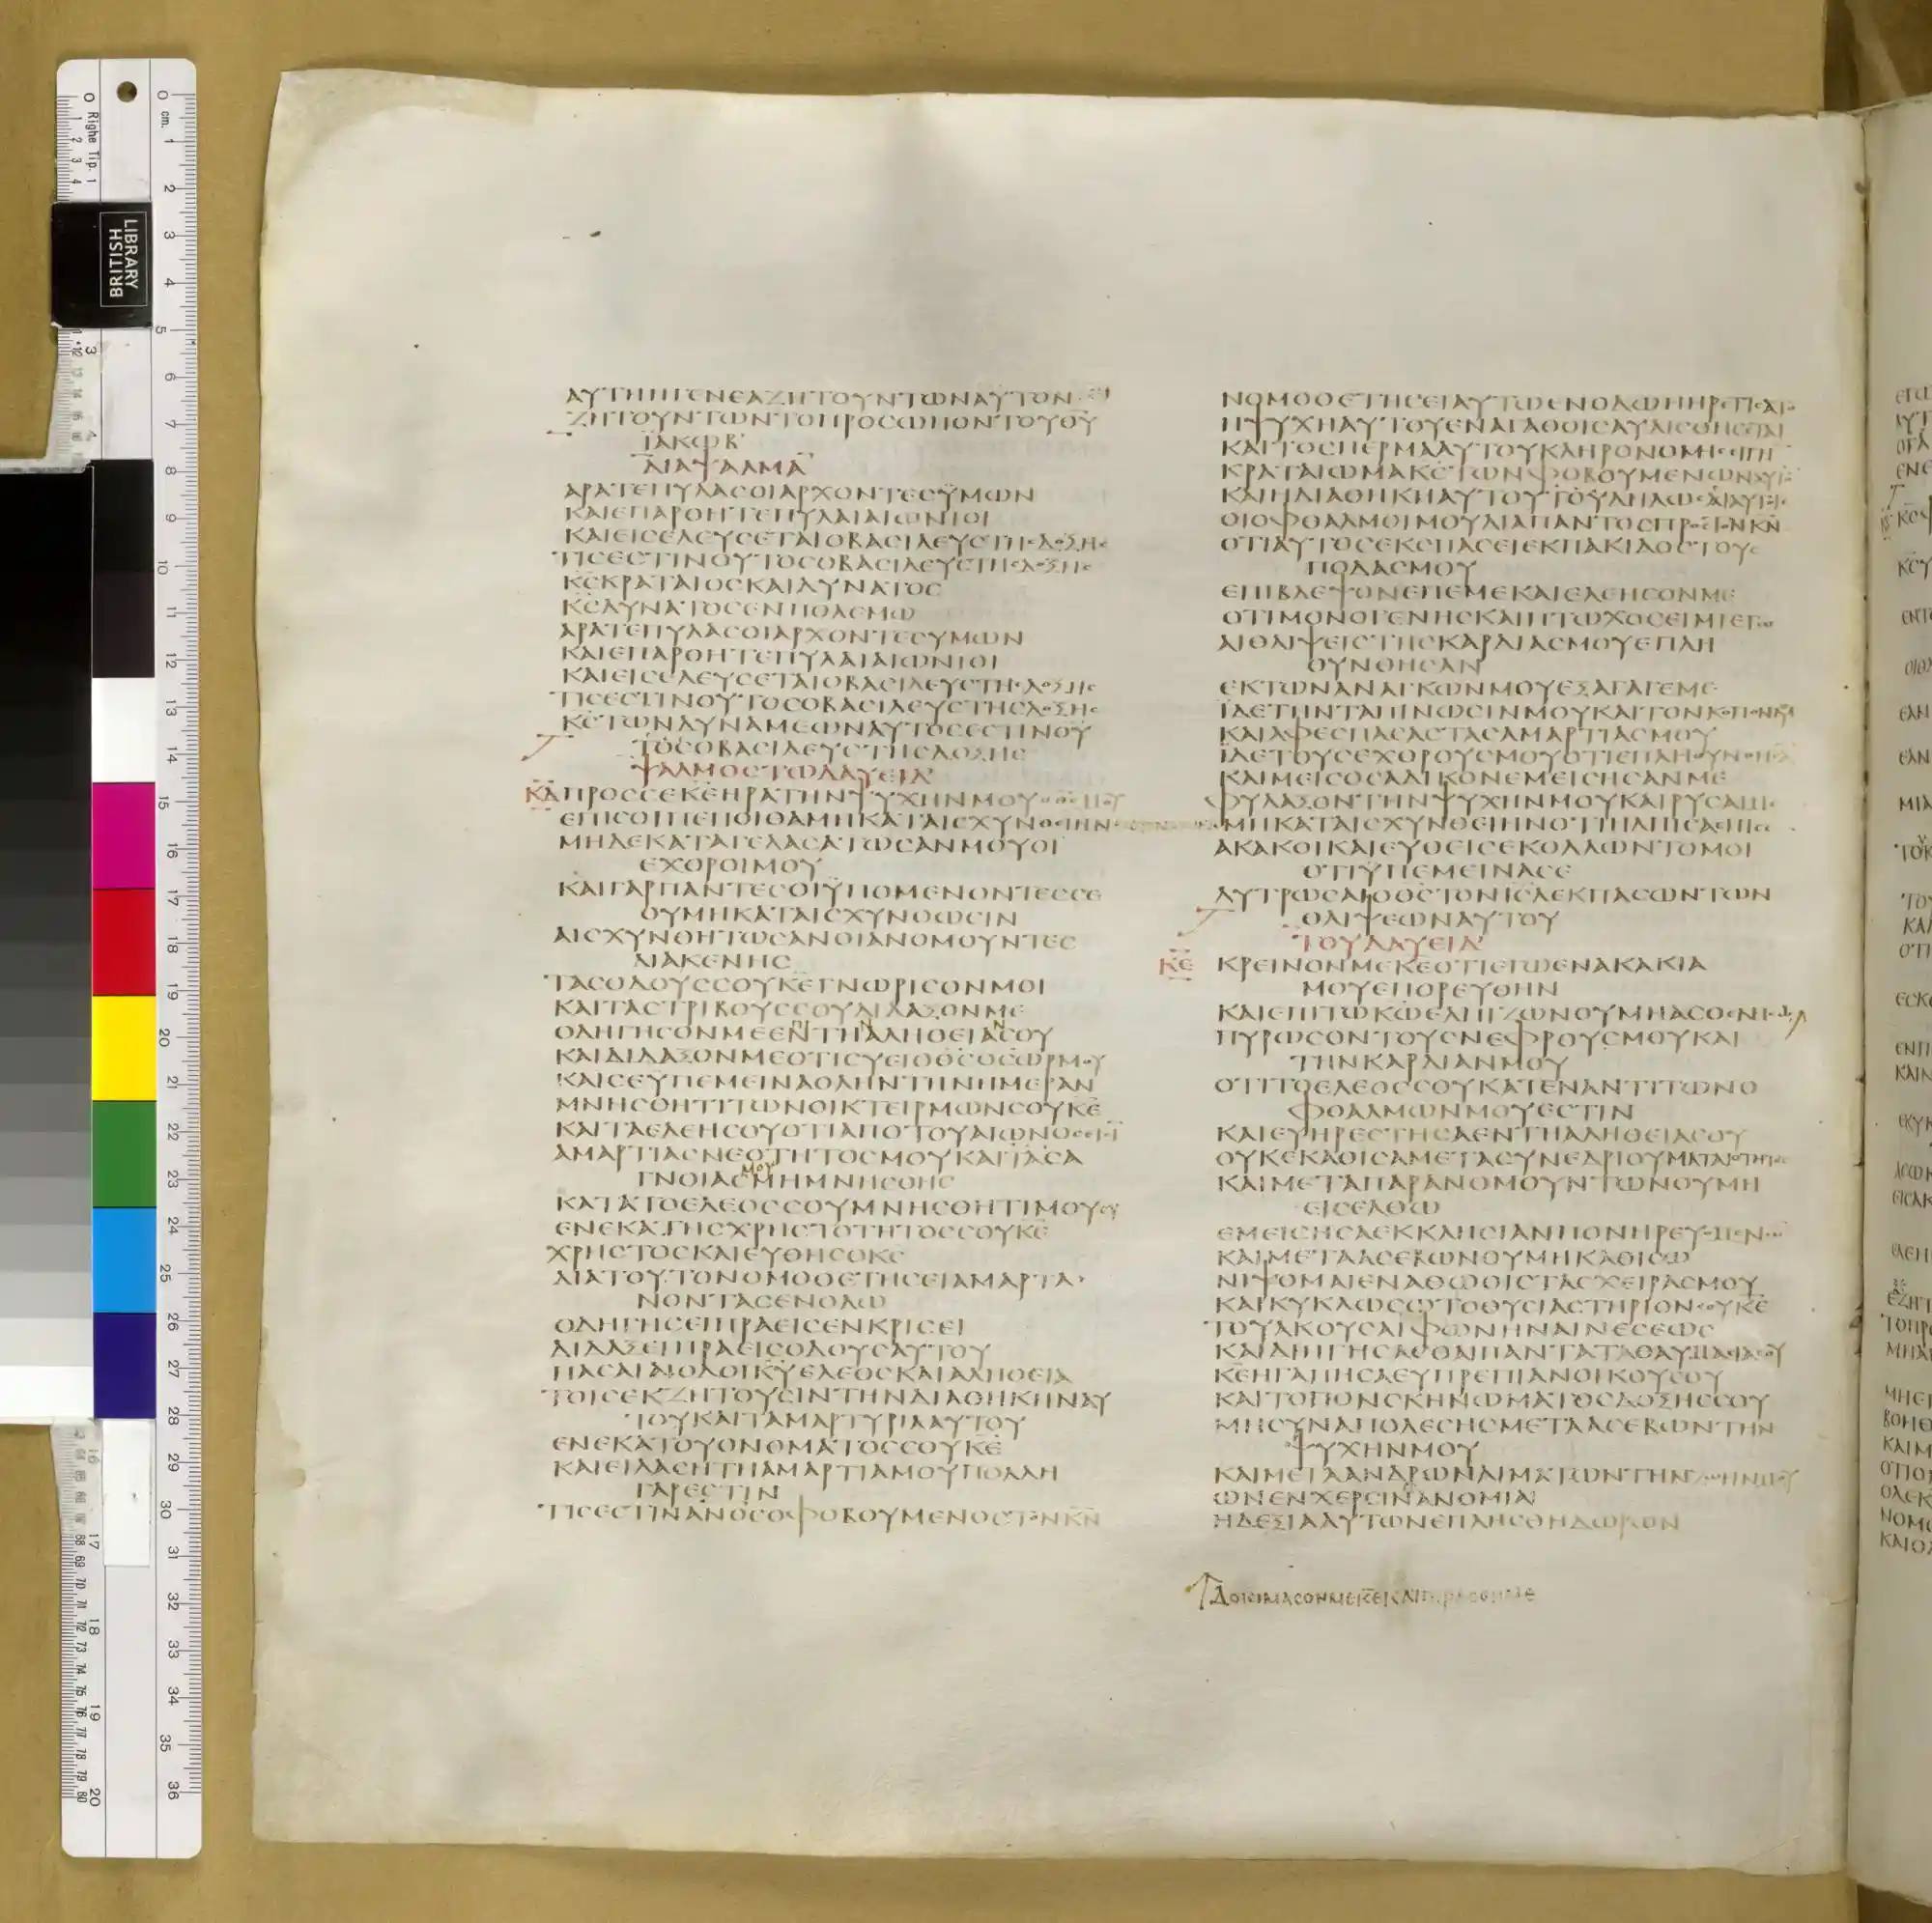 ΑΥΤΗΗΓΕΝΕΑΖΗΤΟΥΝΤΩΝΑΥΤΟΝ
ΖΗΤΟΥΝΤΩΝΤΟΠΡΟΣΩΠΟΝΤΟΥΘΥ
ΪΑΚΩΒ
ΔΙΑΨΑΛΜΑ
ΑΡΑΤΕΠΥΛΑΣΟΙΑΡΧΟΝΤΕΣΫΜΩΝ
ΚΑΙΕΠΑΡΘΗΤΕΠΥΛΑΙΑΙΩΝΙΟΙ
ΚΑΙΕΙΣΕΛΕΥΣΕΤΑΙΟΒΑΣΙΛΕΥΣΤΗΣΔΟΞΗΣ
ΤΙΣΕΣΤΙΝΟΥΤΟΣΟΒΑΣΙΛΕΥΣΤΗΣΔΟΞΗΣ
ΚΣΚΡΑΤΑΙΟΣΚΑΙΔΥΝΑΤΟΣ
ΚΣΔΥΝΑΤΟΣΕΝΠΟΛΕΜΩ
ΑΡΑΤΕΠΥΛΑΣΟΙΑΡΧΟΝΤΕΣΥΜΩΝ
ΚΑΙΕΠΑΡΘΗΤΕΠΥΛΑΙΑΙΩΝΙΟΙ
ΚΑΙΕΙΣΕΛΕΥΣΕΤΑΙΟΒΑΣΙΛΕΥΣΤΗΣΔΟΞΗΣ
ΤΙΣΕΣΤΙΝΟΥΤΟΣΟΒΑΣΙΛΕΥΣΤΗΣΔΟΞΗΣ
ΚΣΤΩΝΔΥΝΑΜΕΩΝΑΥΤΟΣΕΣΤΙΝΟΥ
ΤΟΣΟΒΑΣΙΛΕΥΣΤΗΣΔΟΞΗΣ
ΨΑΛΜΟΣΤΩΔΑΥΕΙΔ
ΚΔ ΠΡΟΣΣΕΚΕΗΡΑΤΗΝΨΥΧΗΝΜΟΥΟΘΣΜΟΥ
ΕΠΙΣΟΙΠΕΠΟΙΘΑΜΗΚΑΤΑΙΣΧΥΝΘΕΙΗΝ
ΜΗΔΕΚΑΤΑΓΕΛΑΣΑΤΩΣΑΝΜΟΥΟΙ
ΕΧΘΡΟΙΜΟΥ
ΚΑΙΓΑΡΠΑΝΤΕΣΟΙΫΠΟΜΕΝΟΝΤΕΣΣΕ
ΟΥΜΗΚΑΤΑΙΣΧΥΝΘΩΣΙΝ
ΑΙΣΧΥΝΘΗΤΩΣΑΝΟΙΑΝΟΜΟΥΝΤΕΣ
ΔΙΑΚΕΝΗΣ
ΤΑΣΟΔΟΥΣΣΟΥΚΕΓΝΩΡΙΣΟΝΜΟΙ
ΚΑΙΤΑΣΤΡΙΒΟΥΣΣΟΥΔΙΔΑΞΟΝΜΕ
ΟΔΗΓΗΣΟΝΜΕΕΝΤΗΑΛΗΘΕΙΑΣΟΥ
ΚΑΙΔΙΔΑΞΟΝΜΕΟΤΙΣΥΕΙΟΘΣΟΣΩΡΜΟΥ
ΚΑΙΣΕΫΠΕΜΕΙΝΑΟΛΗΝΤΗΝΗΜΕΡΑΝ
ΜΝΗΣΘΗΤΙΤΩΝΟΙΚΤΕΙΡΜΩΝΣΟΥΚΕ
ΚΑΙΤΑΕΛΕΗΣΟΥΟΤΙΑΠΟΤΟΥΑΙΩΝΟΣΕΙΣΙ
ΑΜΑΡΤΙΑΣΝΕΟΤΗΤΟΣΜΟΥΚΑΙΤΑΣΑ
ΓΝΟΙΑΣΜΟΥΜΗΜΝΗΣΘΗΣ
ΚΑΤΑΤΟΕΛΕΟΣΣΟΥΜΝΗΣΘΗΤΙΜΟΥΣΥ
ΕΝΕΚΑΤΗΣΧΡΗΣΤΟΤΗΤΟΣΣΟΥΚΕ
ΧΡΗΣΤΟΣΚΑΙΕΥΘΗΣΟΚΣ
ΔΙΑΤΟΥΤΟΝΟΜΟΘΕΤΗΣΕΙΑΜΑΡΤΑ
ΝΟΝΤΑΣΕΝΟΔΩ
ΟΔΗΓΗΣΕΙΠΡΑΕΙΣΕΝΚΡΙΣΕΙ
ΔΙΔΑΞΕΙΠΡΑΕΙΣΟΔΟΥΣΑΥΤΟΥ
ΠΑΣΑΙΑΙΟΔΟΙΚΥΕΛΕΟΣΚΑΙΑΛΗΘΕΙΑ
ΤΟΙΣΕΚΖΗΤΟΥΣΙΝΤΗΝΔΙΑΘΗΚΗΝΑΥ
ΤΟΥΚΑΙΤΑΜΑΡΤΥΡΙΑΑΥΤΟΥ
ΕΝΕΚΑΤΟΥΟΝΟΜΑΤΟΣΣΟΥΚΕ
ΚΑΙΕΙΛΑΣΗΤΗΑΜΑΡΤΙΑΜΟΥΠΟΛΛΗ
ΓΑΡΕΣΤΙΝ
ΤΙΣΕΣΤΙΝΑΝΟΣΟΦΟΒΟΥΜΕΝΟΣΤΟΝΚΝ
ΝΟΜΟΘΕΤΗΣΕΙΑΥΤΩΕΝΟΔΩΗΗΡΕΤΙΣΑΤΟ
ΗΨΥΧΗΑΥΤΟΥΕΝΑΓΑΘΟΙΣΑΥΛΙΣΘΗΣΕΤΑΙ
ΚΑΙΤΟΣΠΕΡΜΑΑΥΤΟΥΚΛΗΡΟΝΟΜΗΣΕΙΓΗ
ΚΡΑΤΑΙΩΜΑΚΣΤΩΝΦΟΒΟΥΜΕΝΩΝΑΥΤΟ
ΚΑΙΗΔΙΑΘΗΚΗΑΥΤΟΥΤΟΥΔΗΛΩΣΑΙΑΥΤΟΙΣ
ΟΙΟΦΘΑΛΜΟΙΜΟΥΔΙΑΠΑΝΤΟΣΠΡΟΣΤΟΝΚΝ
ΟΤΙΑΥΤΟΣΕΚΣΠΑΣΕΙΕΚΠΑΚΙΔΟΣΤΟΥΣ
ΠΟΔΑΣΜΟΥ
ΕΠΙΒΛΕΨΟΝΕΠΕΜΕΚΑΙΕΛΕΗΣΟΝΜΕ
ΟΤΙΜΟΝΟΓΕΝΗΣΚΑΙΠΤΩΧΟΣΕΙΜΙΕΓΩ
ΑΙΘΛΙΨΕΙΣΤΗΣΚΑΡΔΙΑΣΜΟΥΕΠΛΗ
ΘΥΝΘΗΣΑΝ
ΕΚΤΩΝΑΝΑΓΚΩΝΜΟΥΕΞΑΓΑΓΕΜΕ
ΪΔΕΤΗΝΤΑΠΙΝΩΣΙΝΜΟΥΚΑΙΤΟΝΚΟΠΟΝΜΟΥ
ΚΑΙΑΦΕΣΠΑΣΑΣΤΑΣΑΜΑΡΤΙΑΣΜΟΥ
ΪΔΕΤΟΥΣΕΧΘΡΟΥΣΜΟΥΟΤΙΕΠΛΗΘΥΝΘΗΣΑ
ΚΑΙΜΕΙΣΟΣΑΔΙΚΟΝΕΜΕΙΣΗΣΑΝΜΕ
ΦΥΛΑΞΟΝΤΗΝΨΥΧΗΝΜΟΥΚΑΙΡΥΣΑΙΜΕ
ΜΗΚΑΤΑΙΣΧΥΝΘΕΙΗΝΟΤΙΗΛΠΙΣΑΕΠΙΣΕ
ΑΚΑΚΟΙΚΑΙΕΥΘΕΙΣΕΚΟΛΛΩΝΤΟΜΟΙ
ΟΤΙΫΠΕΜΕΙΝΑΣΕ
ΛΥΤΡΩΣΑΙΟΘΣΤΟΝΙΣΛΕΚΠΑΣΩΝΤΩΝ
ΘΛΙΨΕΩΝΑΥΤΟΥ
ΤΟΥΔΑΥΕΙΔ
ΚΕ ΚΡΕΙΝΟΝΜΕΚΕΟΤΙΕΓΩΕΝΑΚΑΚΙΑ
ΜΟΥΕΠΟΡΕΥΘΗΝ
ΚΑΙΕΠΙΤΩΚΩΕΛΠΙΖΩΝΟΥΜΗΑΣΘΕΝΗΣΩ
ΠΥΡΩΣΟΝΤΟΥΣΝΕΦΡΟΥΣΜΟΥΚΑΙ
ΤΗΝΚΑΡΔΙΑΝΜΟΥ
ΟΤΙΤΟΕΛΕΟΣΣΟΥΚΑΤΕΝΑΝΤΙΤΩΝΟ
ΦΘΑΛΜΩΝΜΟΥΕΣΤΙΝ
ΚΑΙΕΥΗΡΕΣΤΗΣΑΕΝΤΗΑΛΗΘΕΙΑΣΟΥ
ΟΥΚΕΚΑΘΙΣΑΜΕΤΑΣΥΝΕΔΡΙΟΥΜΑΤΑΙΟΤΗΤΟΣ
ΚΑΙΜΕΤΑΠΑΡΑΝΟΜΟΥΝΤΩΝΟΥΜΗ
ΕΙΣΕΛΘΩ
ΕΜΕΙΣΗΣΑΕΚΚΛΗΣΙΑΝΠΟΝΗΡΕΥΟΜΕΝΩΝ
ΚΑΙΜΕΤΑΑΣΕΒΩΝΟΥΜΗΚΑΘΙΣΩ
ΝΙΨΟΜΑΙΕΝΑΘΩΟΙΣΤΑΣΧΕΙΡΑΣΜΟΥ
ΚΑΙΚΥΚΛΩΣΩΤΟΘΥΣΙΑΣΤΗΡΙΟΝΣΟΥΚΕ
ΤΟΥΑΚΟΥΣΑΙΦΩΝΗΝΑΙΝΕΣΕΩΣ
ΚΑΙΔΙΗΓΗΣΑΣΘΑΙΠΑΝΤΑΤΑΘΑΥΜΑΣΙΑΣΟΥ
ΚΕΗΓΑΠΗΣΑΕΥΠΡΕΠΙΑΝΟΙΚΟΥΣΟΥ
ΚΑΙΤΟΠΟΝΣΚΗΝΩΜΑΤΟΣΔΟΞΗΣΣΟΥ
ΜΗΣΥΝΑΠΟΛΕΣΗΣΜΕΤΑΑΣΕΒΩΝΤΗΝ
ΨΥΧΗΝΜΟΥ
ΚΑΙΜΕΤΑΑΝΔΡΩΝΑΙΜΑΤΩΝΤΗΝΖΩΗΝΜΟΥ
ΩΝΕΝΧΕΡΣΙΝΑΝΟΜΙΑ
ΗΔΕΞΙΑΑΥΤΩΝΕΠΛΗΣΘΗΔΩΡΩΝ
ΔΟΚΙΜΑΣΟΝΜΕΚΕΚΑΙΠΙΡΑΣΟΝΜΕ
LIBRARY
BRITISH
Righe Tip. 1
cm.